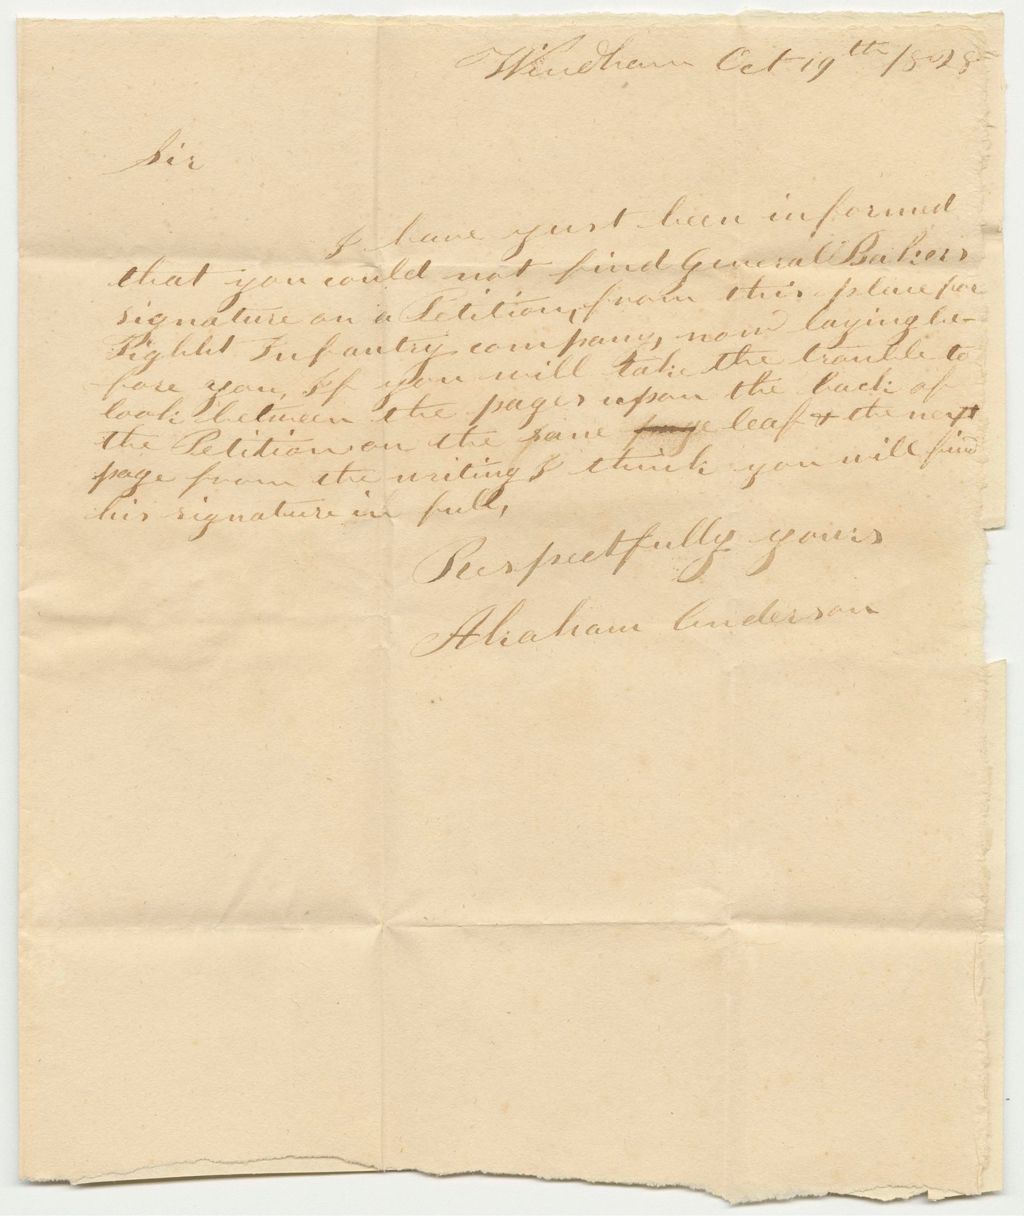 Windham Oct 19th 1828
Sir
I have just been informed
that you could not find General Bakers
signature on a Petition, from this place for
Light Infantry company, now laying be-
fore you, If you will take the trouble to
look between the pages upon the back of
the Petition on the same page leaf & the next
page from the writing I think you will find
his signature in full,
Respectfully yours
Abraham Anderson